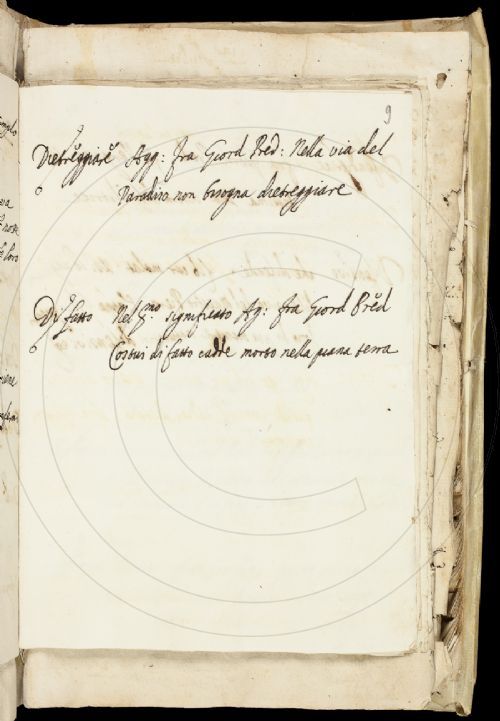 9
Dietreggiare Agg: fra Giord Pred: Nella via del
Paradiso non bisogna dietreggiare
Di fatto Nel pmo significato Ag: fra Giord Pred
Costui di fatto cadde morto nella piana terra